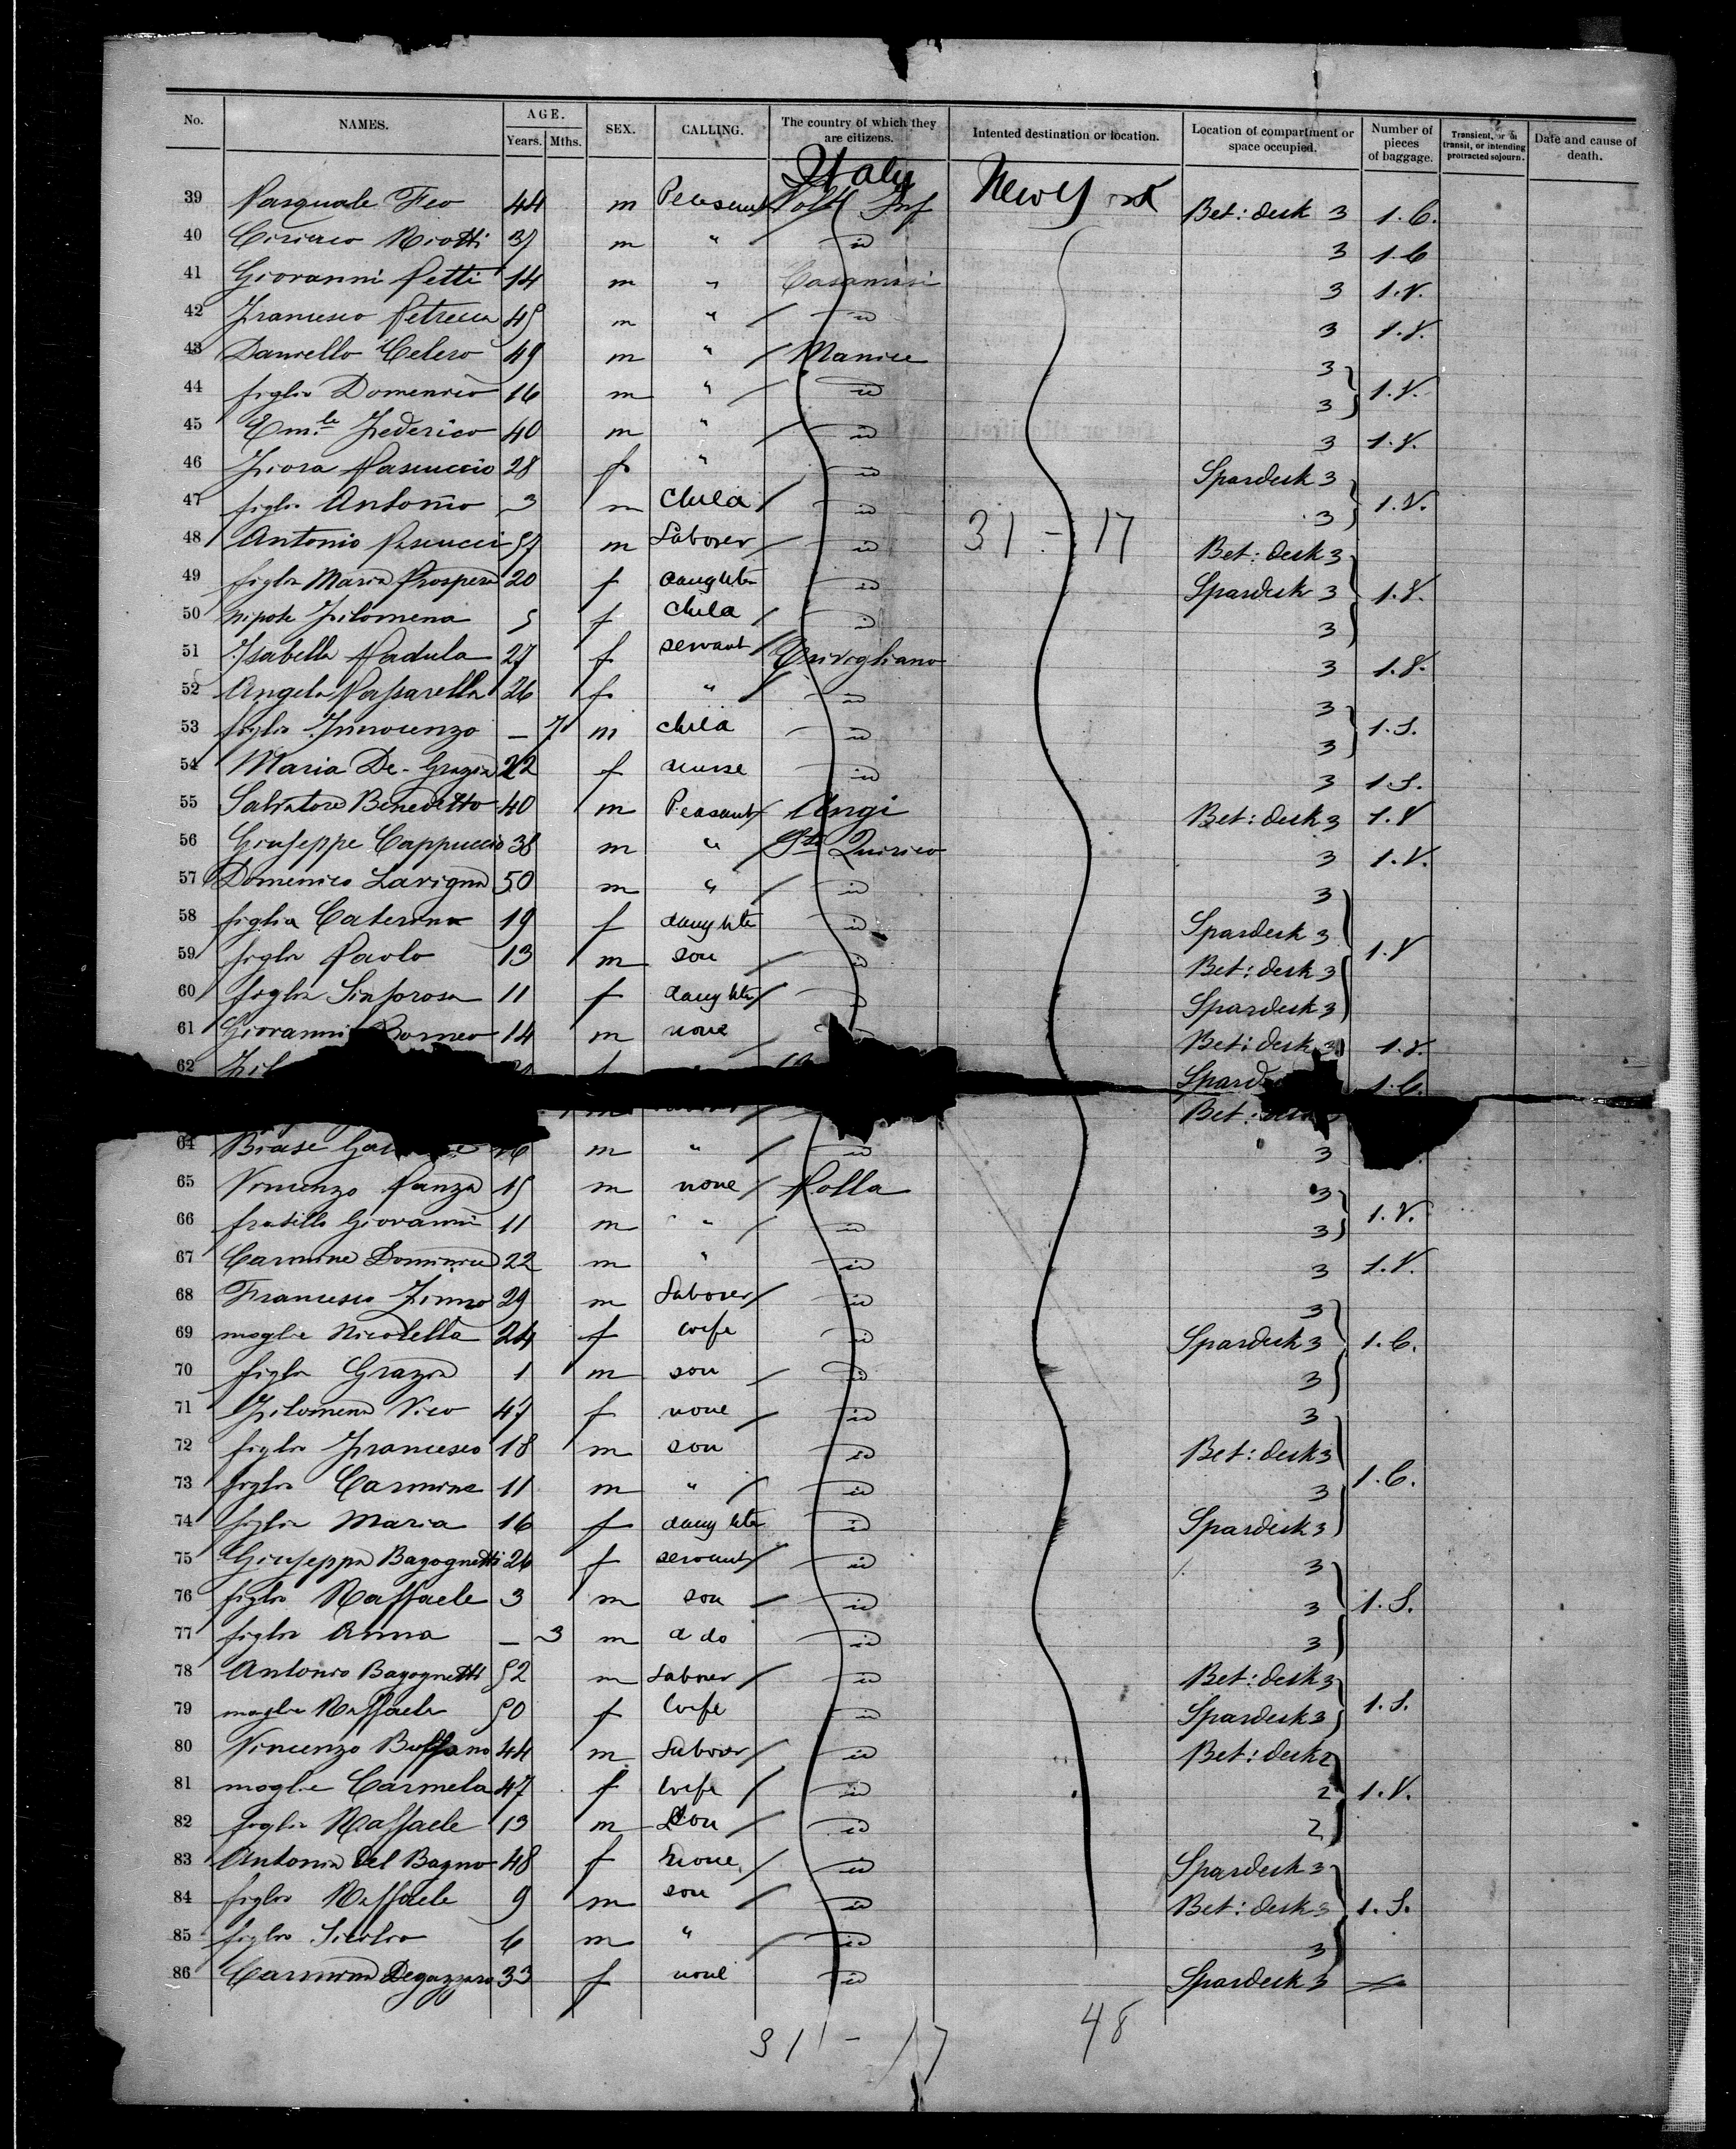 No. NAMES. AGE. Years. Mths. SEX. CALLING. The country of which they are citizens. Intented destination or location. Location of compartment or space occupied. Number of pieces of baggage. Transient, or in transit, or intending protracted sojourn. Date and cause of death.
Italy New York
39 Pasquale Feo 44 m Peasant Inf Bet: desk 3 1.C.
40 Ciriaco Riotti 37 m " id 3 1.C
41 Giovanni Petti 14 m " 3 1.V.
42 Francesco Petrecca 45 m " id 3 1.V.
43 Daniello Celero 49 m " 3
44 figlio Domenico 16 m " id 3 1.V.
45 Em.le Federico 40 m " id 3 1.V.
46 Pascuccio 28 f " id Spardesk 3
47 figlio Antonio 3 m child id 3 1.V.
48 Antonio Pascucci 57 m Laborer id 31 - 17 Bet: desk 3
49 figlia Maria Prospera 20 f daughter id Spardesk 3 1.V.
50 nipote Filomena 5 f child id 3
51 Isabella Padula 27 f servant Trivigliano 3 1.V.
52 Angela Passarella 26 f " id 3
53 figlio Innocenzo — 7 m child id 3 1.S.
54 Maria De-Grazia 22 f nurse id 3 1.S.
55 Salvatore Benedetto 40 m Peasant Angi Bet: desk 3 1.V
56 Giuseppe Cappuccio 38 m " Quirico 3 1.V.
57 Domenico Lavigna 50 m " id 3
58 figlia Caterina 19 f daughter id Spardesk 3
59 figlio Paolo 13 m son id Bet: desk 3 1.V
60 figlia Sinforosa 11 f daughter Spardesk 3
61 Giovanni Borneo 14 m none Bet: desk 3 1.V.
62 1.C.
Bet:
64 Biase m " id 3
65 Vincenzo Panza 15 m none Polla 3
66 fratello Giovanni 11 m " id 3 1.V.
67 Carmine 22 m " id 3 1.V.
68 Francesco 29 m Laborer id 3
69 moglie Nicoletta 24 f wife id Spardesk 3 1.C.
70 figlio Grazio 1 m son id 3
71 Filomena Vico 47 f none id 3
72 figlio Francesco 18 m son id Bet: desk 3
73 figlio Carmine 11 m " id 3 1.C.
74 figlia Maria 16 f daughter id Spardesk 3
75 Giuseppa Bagognetti 26 f servant id 3
76 figlio Raffaele 3 m son id 3 1.S.
77 figlia Anna — 3 m do id 3
78 Antonio Bagognetti 52 m Laborer id Bet: desk 3
79 moglie Raffaela 50 f wife id Spardesk 3 1.S.
80 Vincenzo Buffano 44 m Laborer id Bet: desk 2
81 moglie Carmela 47 f wife id 2 1.V.
82 figlio Raffaele 13 m son id 2
83 Antonia Del Bagno 48 f none id Spardesk 3
84 figlio Raffaele 9 m son id Bet: desk 3 1.S.
85 figlio 6 m " id 3
86 Carmina Degazzaro 33 f none id Spardesk 3
31 - 17 48